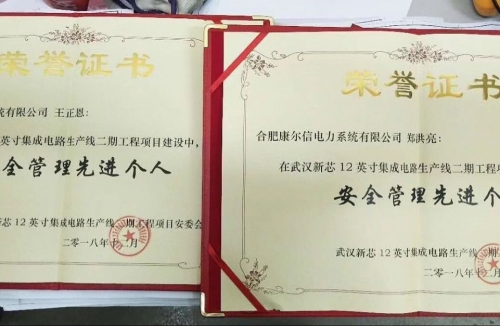 荣誉证书
统有限公司 王正恩:
英寸集成电路生产线二期工程项目建设中,
全管理先进个人
新芯12英寸集成电路生产线二期工程项目安委会
二〇一八年十二月
荣誉证书
合肥康尔信电力系统有限公司 郑洪亮:
在武汉新芯12英寸集成电路生产线二期工程项
安全管理先进个
武汉新芯12英寸集成电路生产线二期
二〇一八年十二月